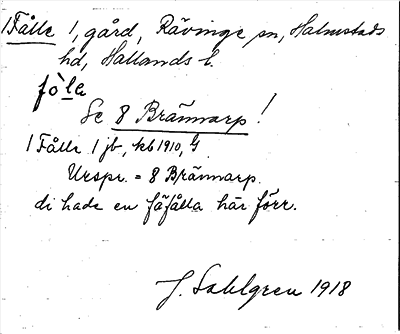 1 Fålle 1, gård, Rävinge sn, Halmstads
hd, Hallands l.
fò`le
Se 8 Brännarp!
1 Fålle 1 jb, kb 1910, G
Urspr. = 8 Brännarp.
di hade en fäfålla här förr.
J. Sahlgren 1918